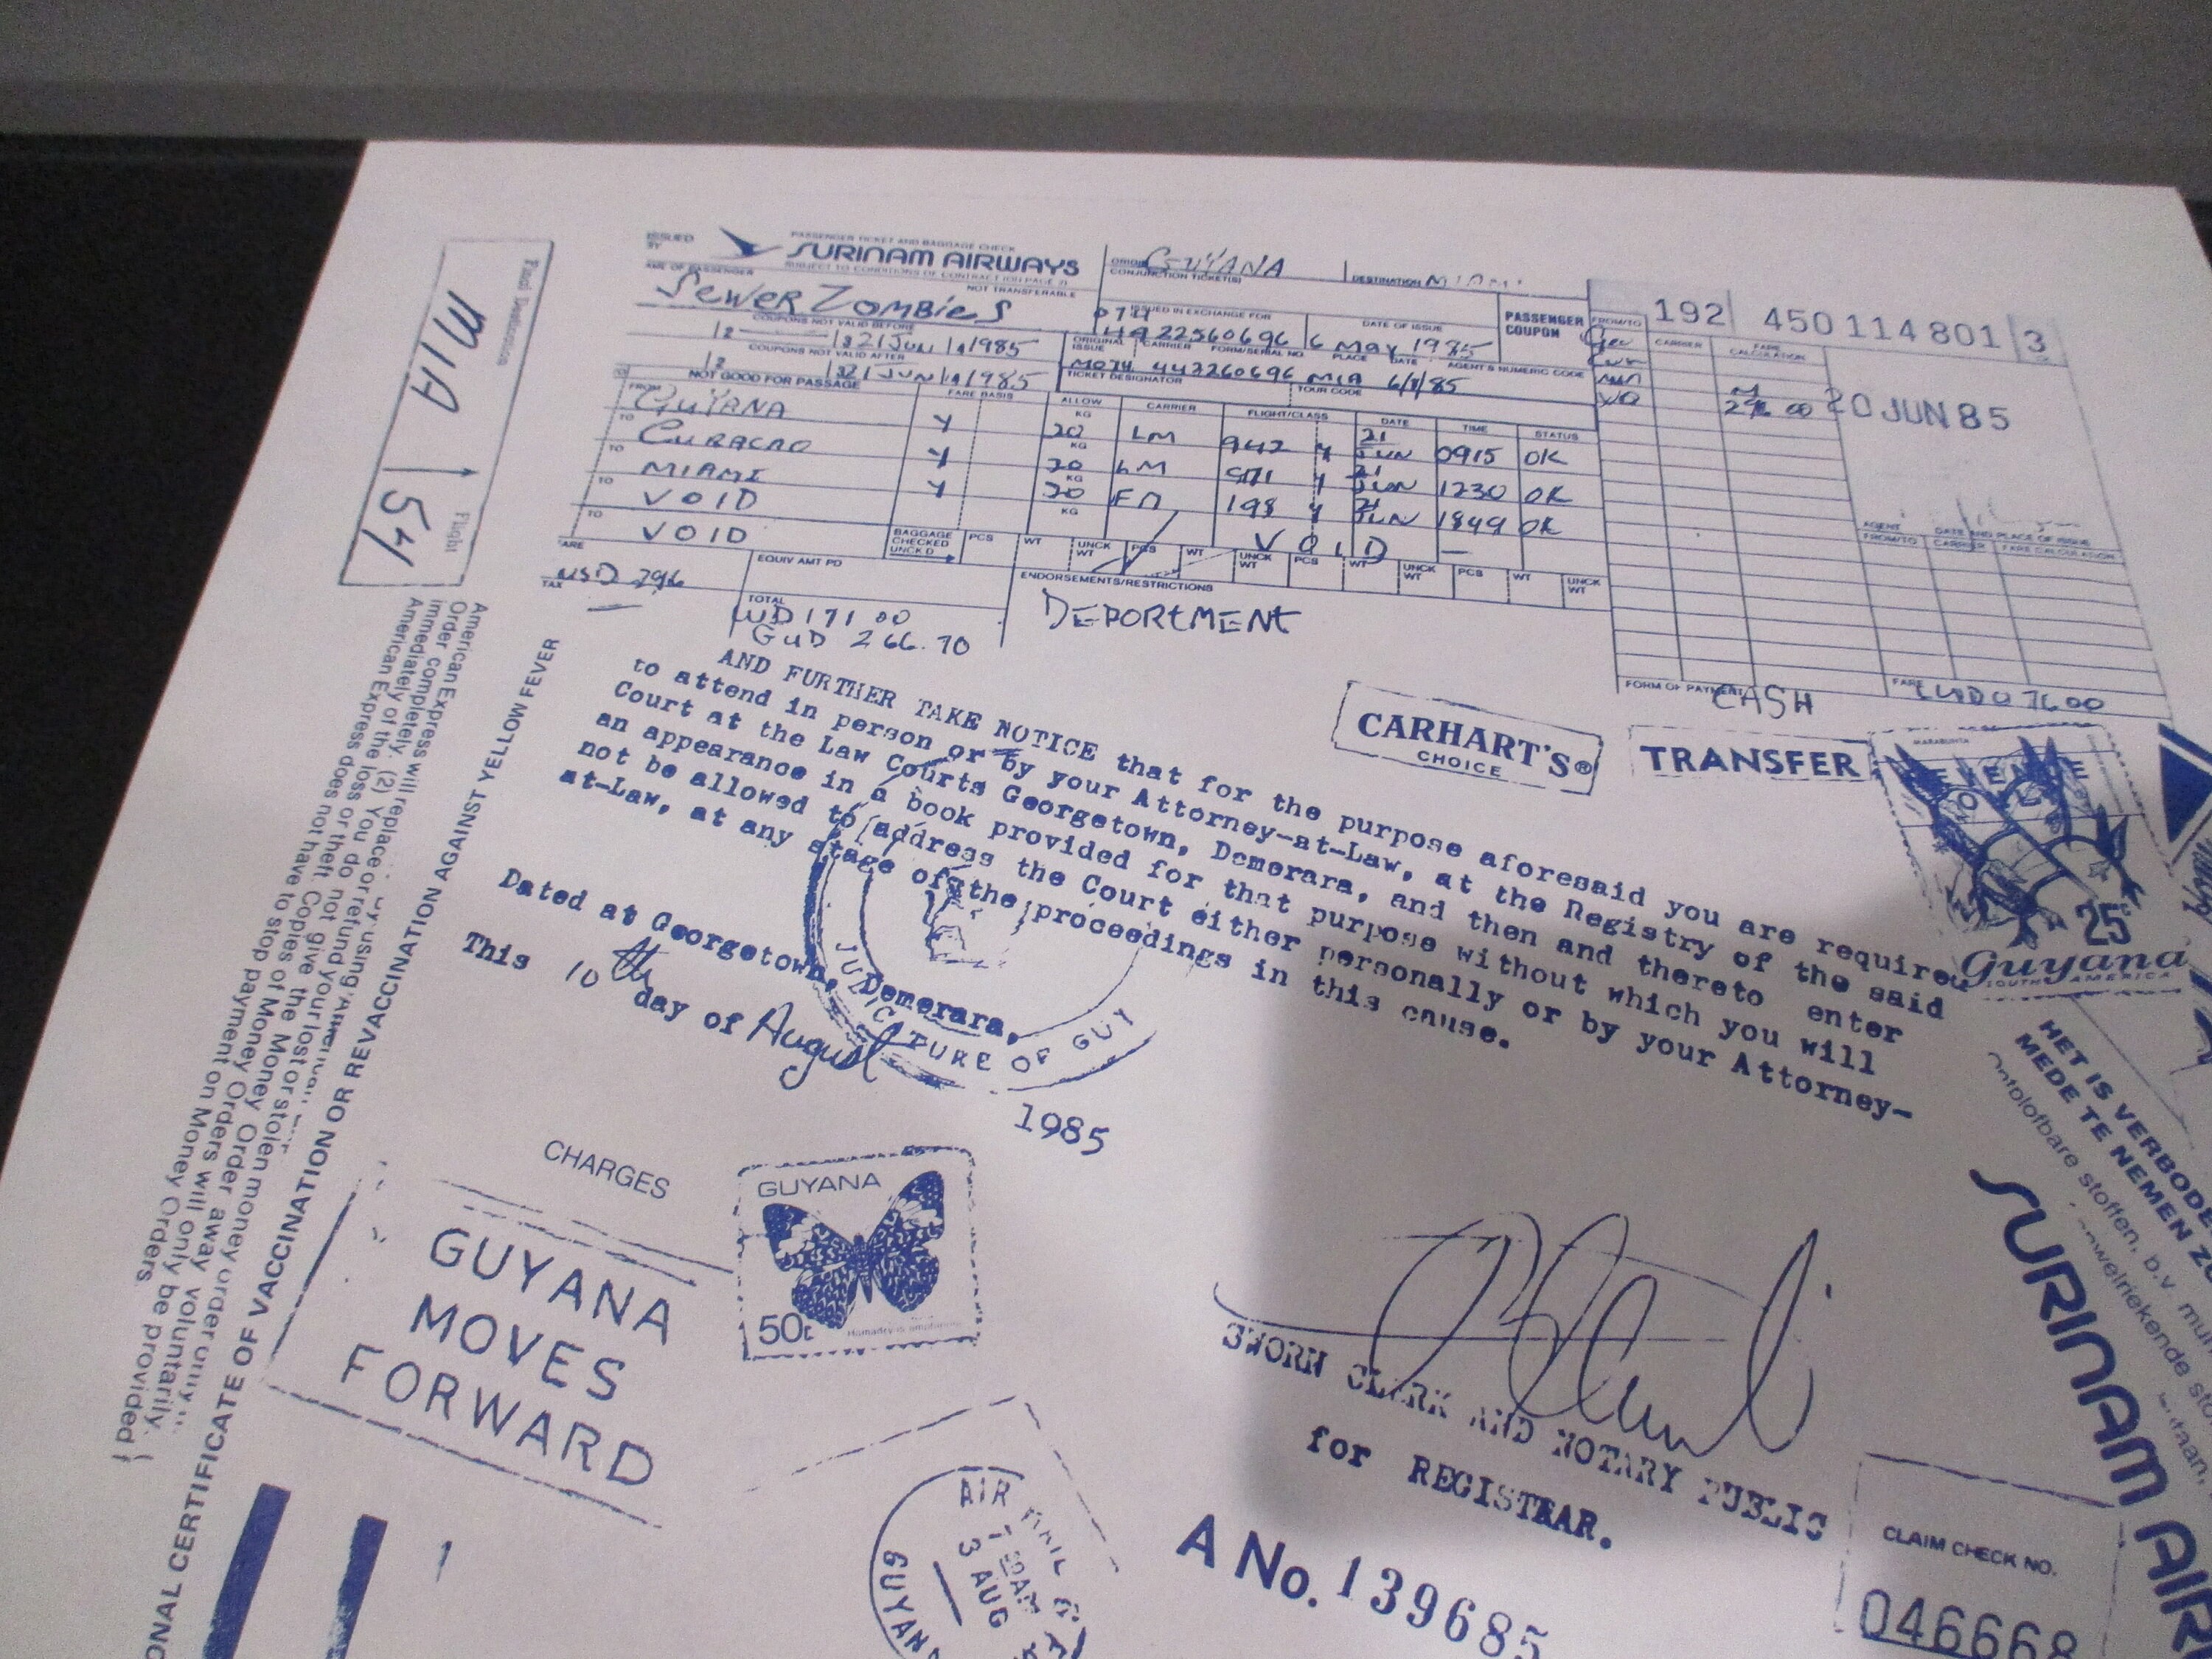 Final Destination
MIA
Flight
54
ISSUED BY
PASSENGER TICKET AND BAGGAGE CHECK
SURINAM AIRWAYS
SUBJECT TO CONDITIONS OF CONTRACT ON PAGE 2
NOT TRANSFERABLE
AME OF PASSENGER
SEWER ZOMBIES
ORIGIN GUYANA
DESTINATION MIAMI
CONJUNCTION TICKET(S)
ISSUED IN EXCHANGE FOR
DATE OF ISSUE
6 May 1985
PASSENGER COUPON
COUPONS NOT VALID BEFORE
21 JUN 1985
ORIGINAL ISSUE CARRIER FORM/SERIAL NO. PLACE DATE AGENT'S NUMERIC CODE
COUPONS NOT VALID AFTER
21 JUN 1985
MIA
TICKET DESIGNATOR
TOUR CODE
192 450 114 801 3
20 JUN 85
FROM/TO CARRIER FARE CALCULATION
NOT GOOD FOR PASSAGE FARE BASIS ALLOW CARRIER FLIGHT/CLASS DATE TIME STATUS
FROM GUYANA Y 20 KG LM 942 Y 21 JUN 0915 OK
TO CURACAO Y 20 KG LM 971 Y 21 JUN 1230 OK
TO MIAMI Y 20 KG 198 Y 21 JUN 1849 OK
TO VOID KG VOID
TO VOID
BAGGAGE CHECKED UNCK'D PCS WT UNCK WT PCS WT UNCK WT PCS WT UNCK WT PCS WT UNCK WT
AGENT DATE AND PLACE OF ISSUE
FROM/TO CARRIER FARE CALCULATION
FARE
USD 296
EQUIV AMT PD
ENDORSEMENTS/RESTRICTIONS
TAX
TOTAL
171.00
GUD 266.70
DEPORTMENT
FORM OF PAYMENT CASH
FARE
AND FURTHER TAKE NOTICE that for the purpose aforesaid you are required
to attend in person or by your Attorney-at-Law, at the Registry of the said
Court at the Law Courts Georgetown, Demerara, and then and thereto enter
an appearance in a book provided for that purpose without which you will
not be allowed to address the Court either personally or by your Attorney-
at-Law, at any stage of the proceedings in this cause.
CARHART'S®
CHOICE
TRANSFER
MARABUNTA
REVENUE
25
Guyana
SOUTH AMERICA
Dated at Georgetown, Demerara,
This 10th day of August
1985
JUDICATURE OF GUY
CHARGES
GUYANA
50c
GUYANA
MOVES
FORWARD
AIR MAIL
3 AUG
GUYANA
SWORN CLERK AND NOTARY PUBLIC
for REGISTRAR.
A No. 139685
CLAIM CHECK NO.
046668
HET IS VERBODE
MEDE TE NEMEN
stoffen, b.v.
SURINAM AIR
ONAL CERTIFICATE OF VACCINATION OR REVACCINATION AGAINST YELLOW FEVER
American Express will replace or refund your lost or stolen money order only
Order completely. (2) You do not give the Money Order away voluntarily.
immediately of the loss or theft. Copies of Money Orders will only be provided
American Express does not have to stop payment on Money Orders.